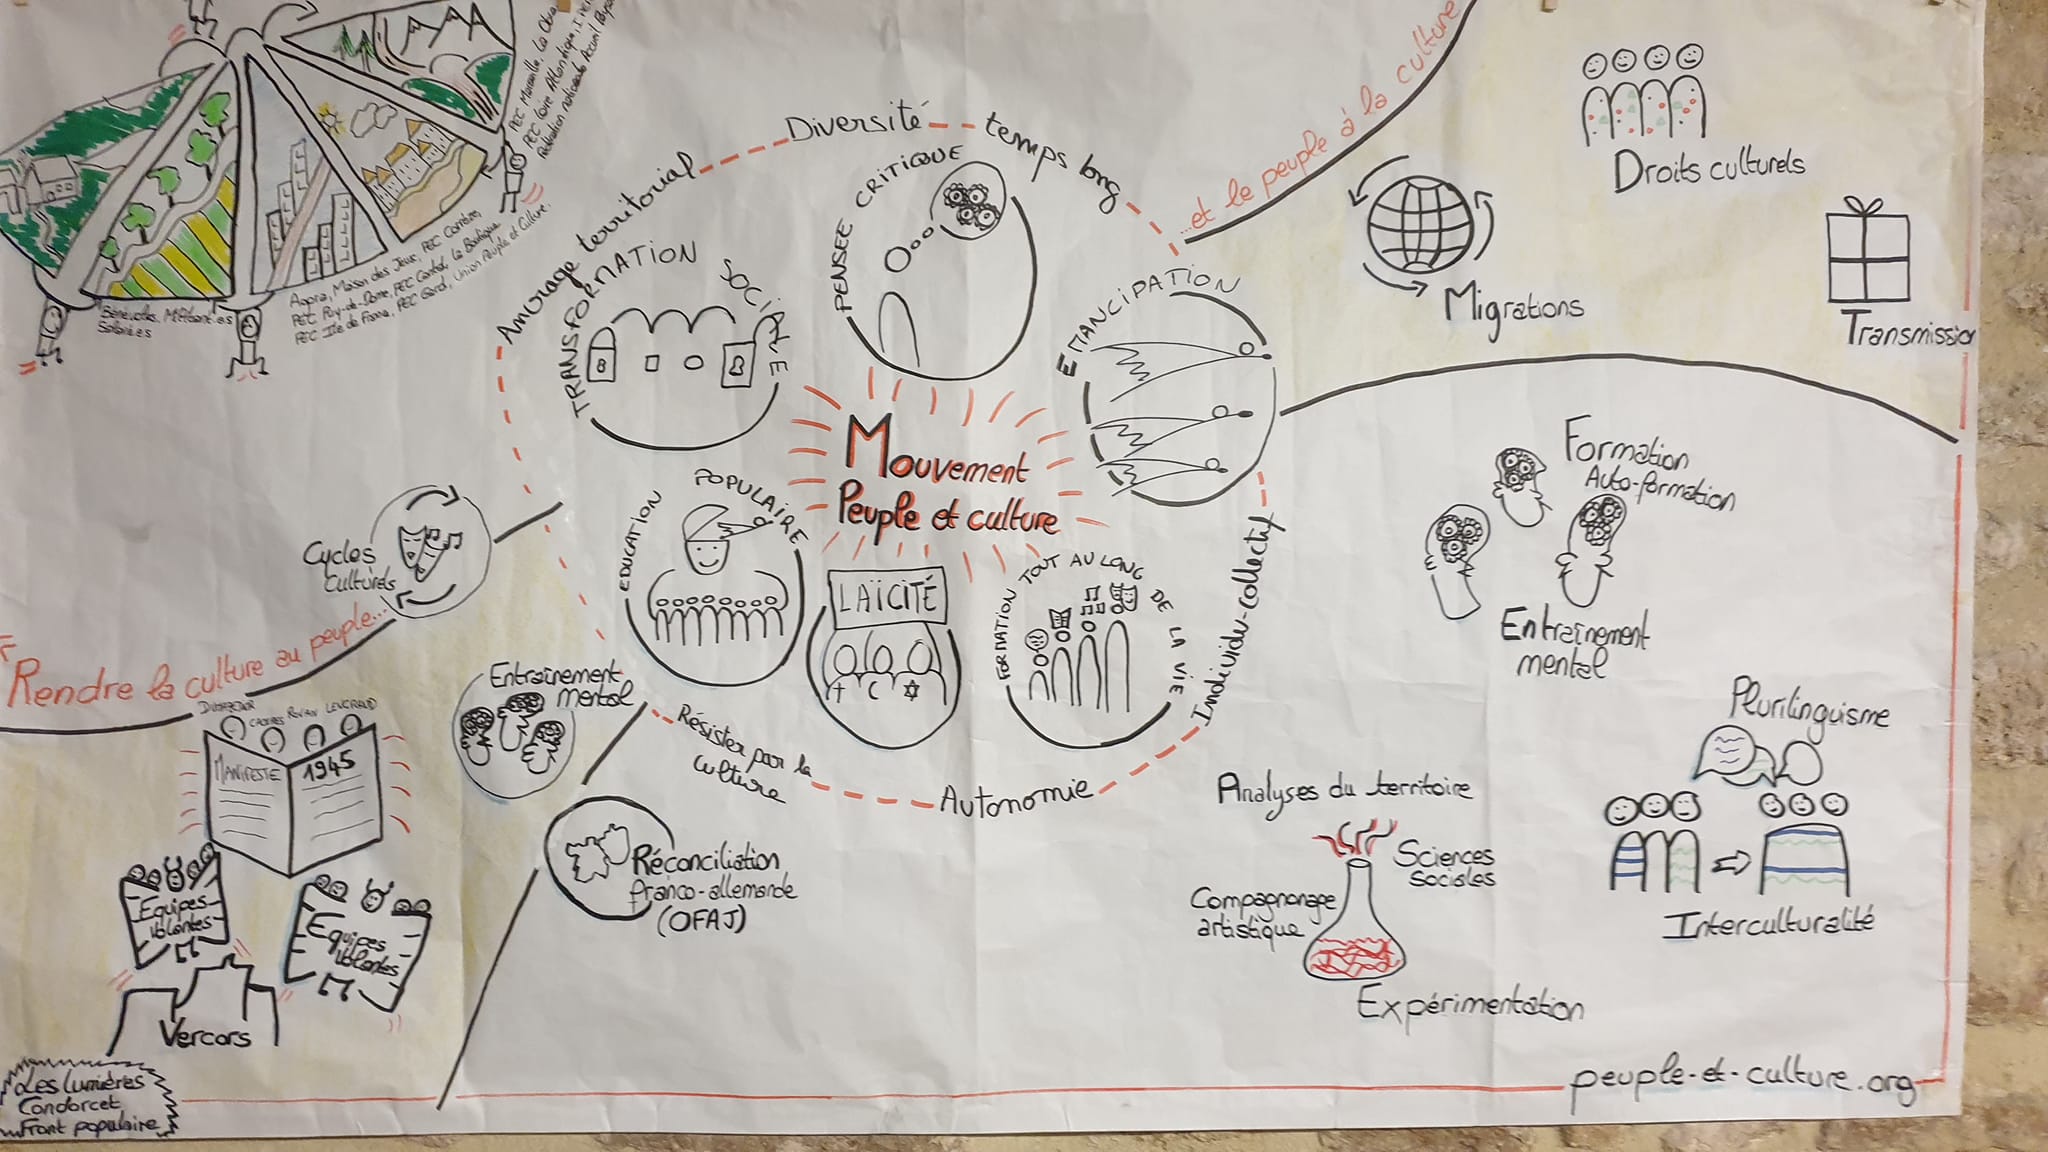 PEC Marseille, La
PEC Loire Atlantique,
Bénévoles, Militant·es
Salarié·es
Maison des Jeux, PEC Corrèze,
PEC Puy-de-Dôme, PEC Cantal, La Boutique
PEC Ile de France, PEC Gard, Union Peuple et Culture.
Rendre la culture au peuple...
...et le peuple à la culture
Ancrage territorial
Diversité
temps long
Individu-collectif
Autonomie
Résister par la
culture
TRANSFORMATION SOCIALE
PENSEE CRITIQUE
EMANCIPATION
Mouvement
Peuple et culture
EDUCATION POPULAIRE
LAÏCITÉ
FORMATION TOUT AU LONG DE LA VIE
Droits culturels
Migrations
Transmission
Formation
Auto-formation
Entraînement
mental
Plurilinguisme
Interculturalité
Analyses du territoire
Sciences
sociales
Compagnonage
artistique
Expérimentation
Cycles
Culturels
Entraînement
mental
Réconciliation
franco-allemande
(OFAJ)
CACERES ROVAN LENGRAND
MANIFESTE 1945
Equipes
volantes
Equipes
volantes
Vercors
Les lumières
Condorcet
Front populaire
peuple-et-culture.org